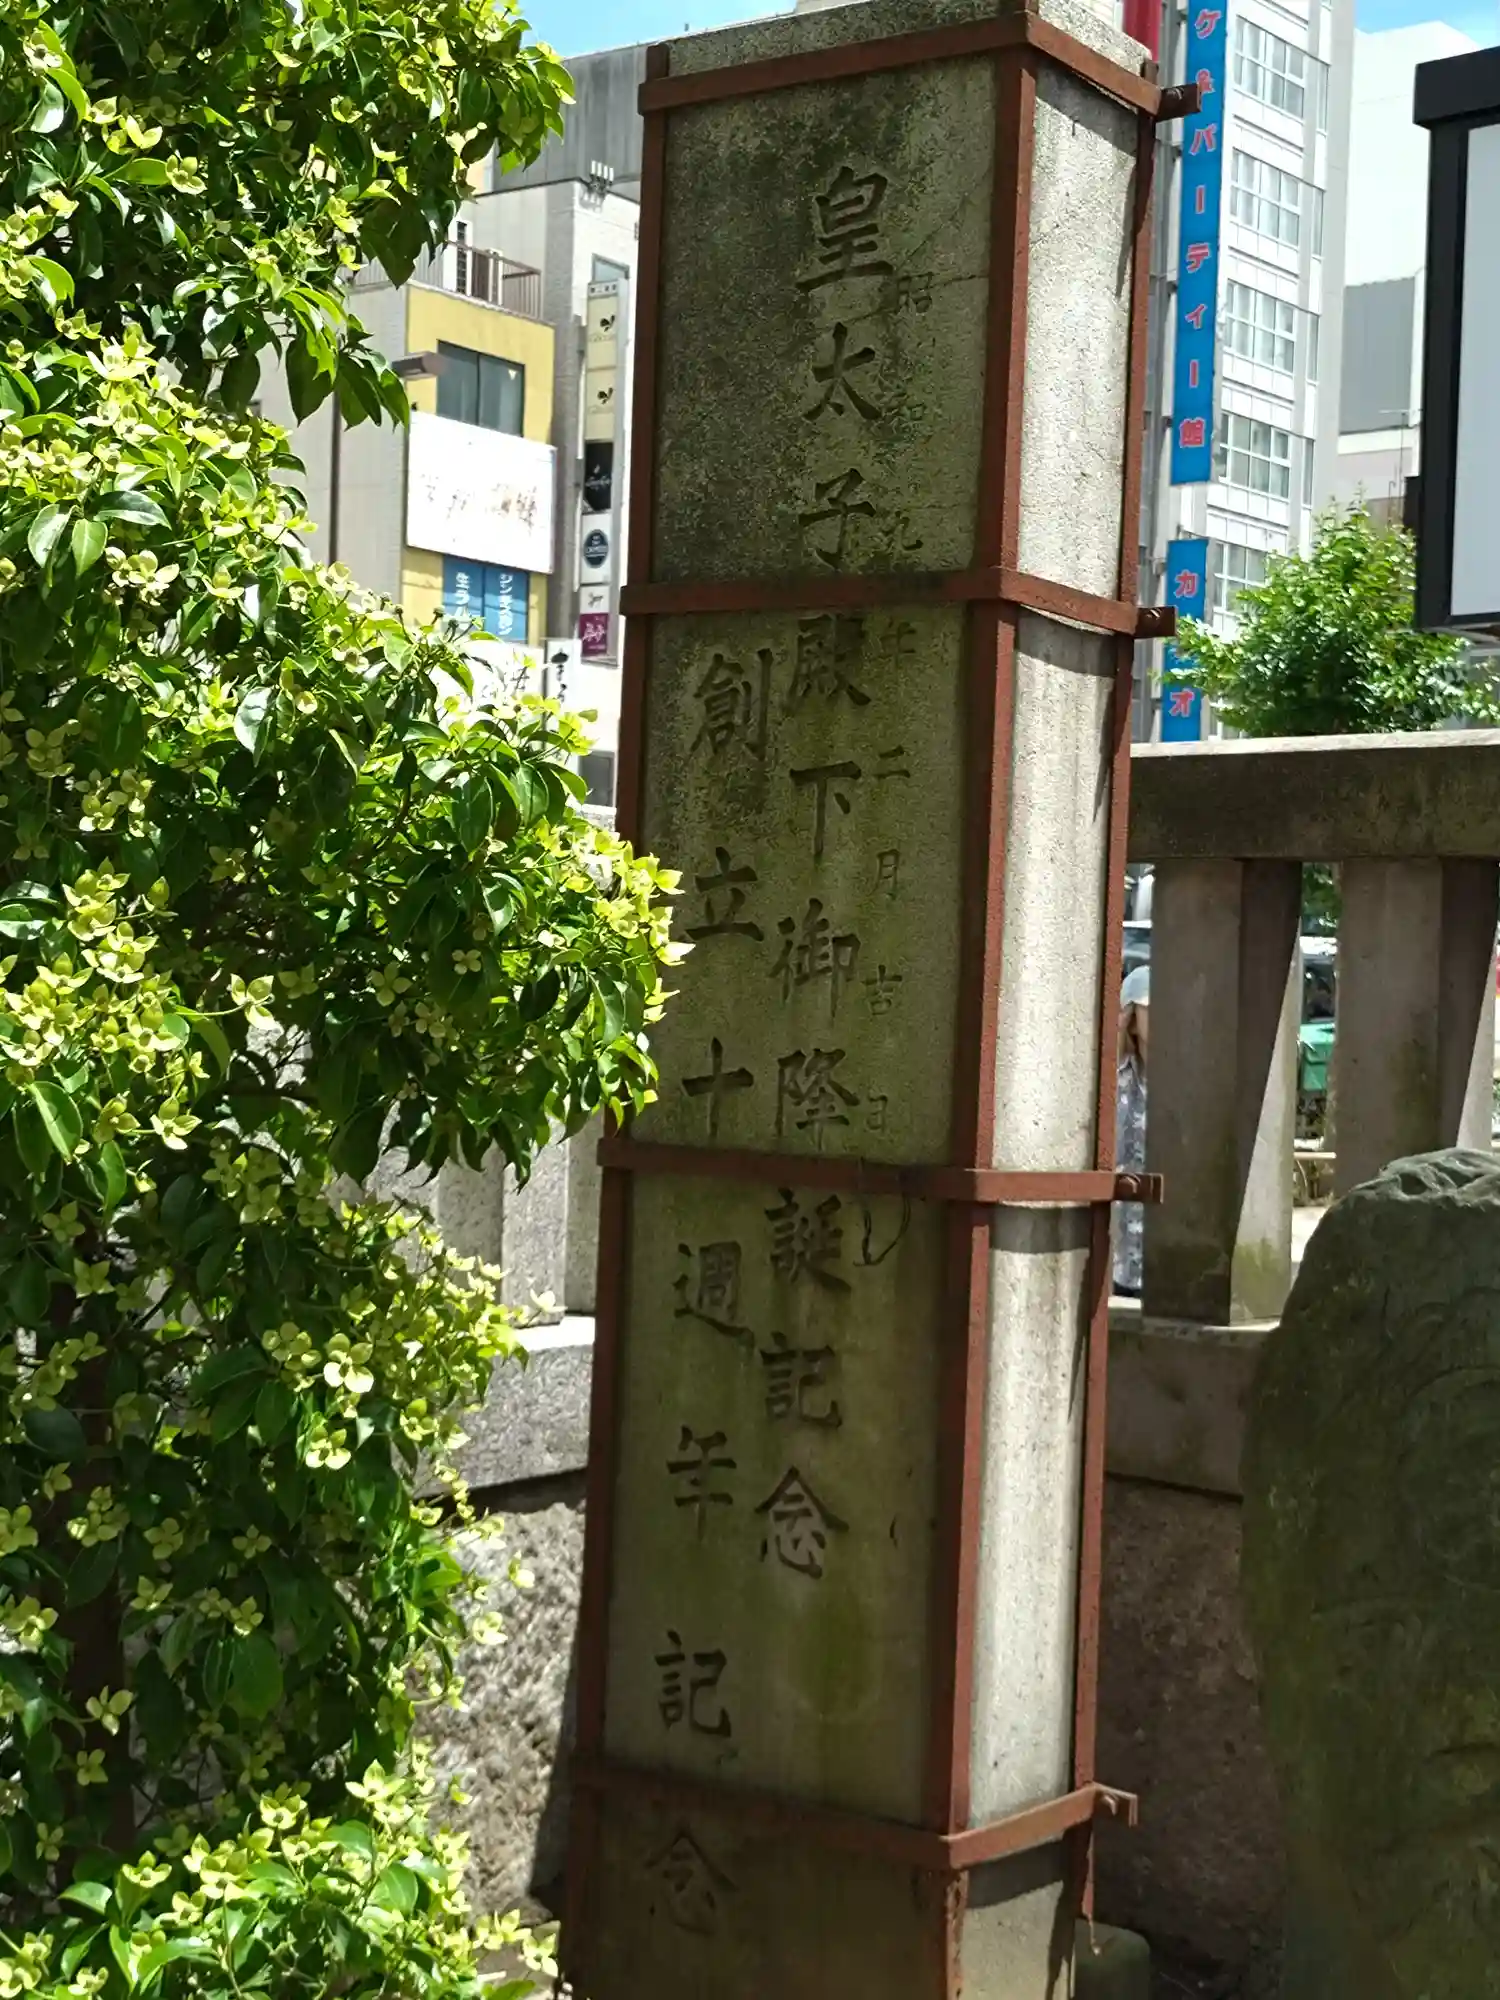 昭和九年二月吉日
皇太子殿下御降誕記念
創立十週年記念
ケ&パーティー館
カ
オ